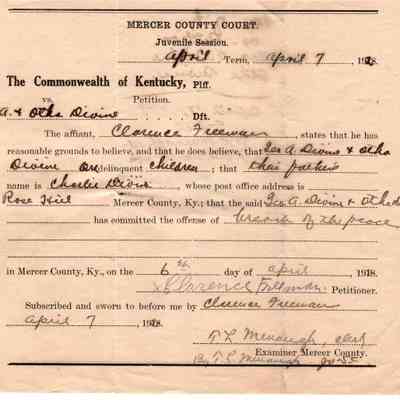 MERCER COUNTY COURT.
Juvenile Session.
April Term, April 7, 1918.
The Commonwealth of Kentucky, Plff.
vs. Petition.
A. & Otha Divine Dft.
The affiant, Clarence Freeman, states that he has
reasonable grounds to believe, and that he does believe, that Geo A. Divine & Otha
Divine are delinquent children; that their father's
name is Charlie Divine, whose post office address is
Rose Hill Mercer County, Ky.; that the said Geo A. Divine & Otha D
has committed the offense of breach of the peace
in Mercer County, Ky., on the 6th day of April 1918.
x Clarence Freeman Petitioner.
Subscribed and sworn to before me by Clarence Freeman
April 7 1918.
T L Menaugh, clerk
Examiner Mercer County.
By T L Menaugh